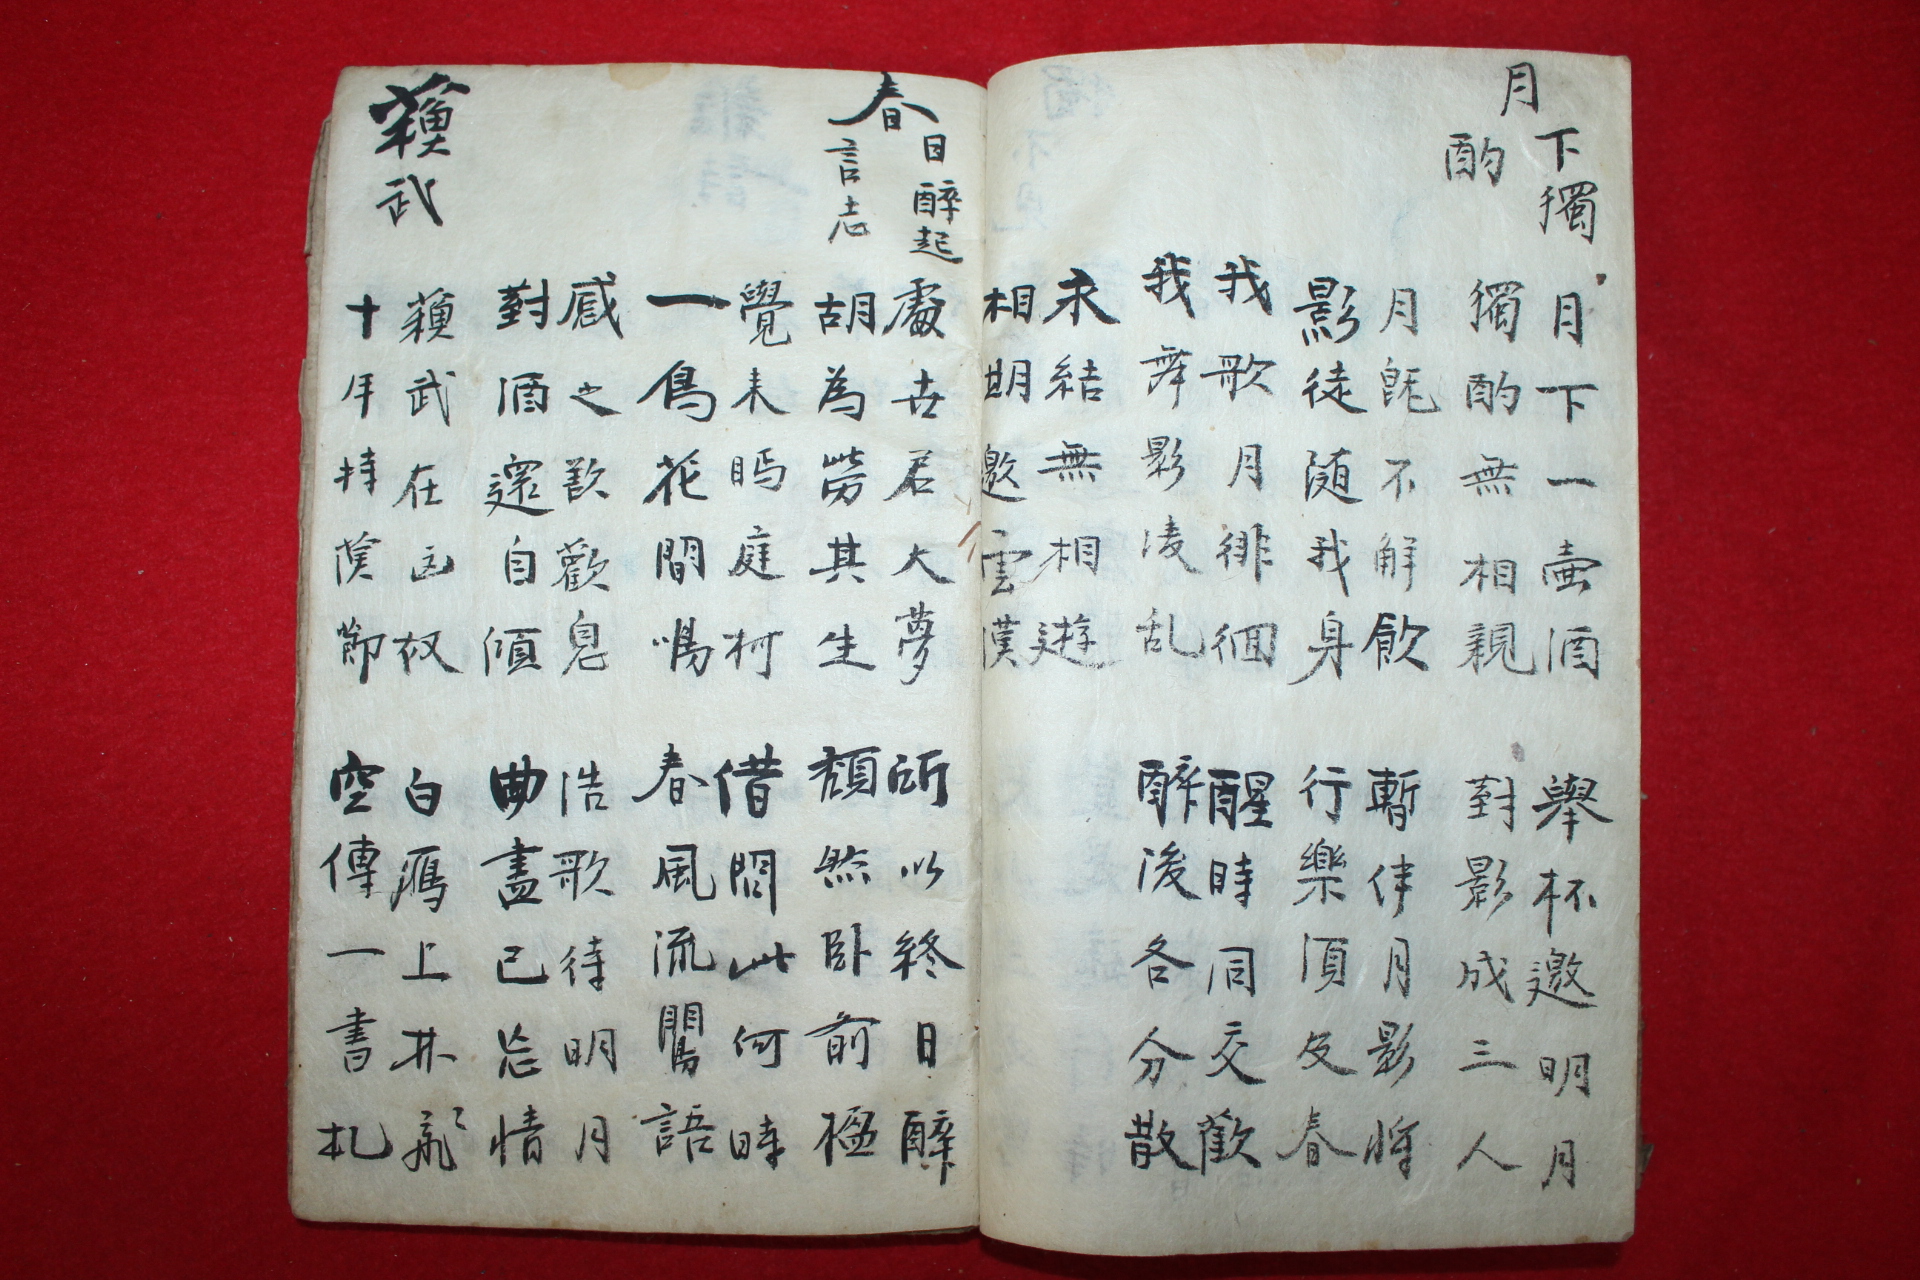 月下獨
酌
月下一壷酒 舉杯邀明月
獨酌無相親 對影成三人
月旣不解飮 暫伴月影將
影徒随我身 行樂須及春
我歌月徘徊 醒時同交歡
我舞影凌乱 醉後各分散
永結無相遊
相期邀雲漢
春日醉起
言志
處世若大夢 所以終日醉
胡為勞其生 頹然卧前楹
覺来眄庭柯 借問此何時
一鳥花間鳴 春風流鸎語
感之欲歎息 浩歌待明月
對酒還自傾 曲盡已忘情
蘇武
蘇武在匈奴 白鴈上林飛
十年持漢節 空傳一書札